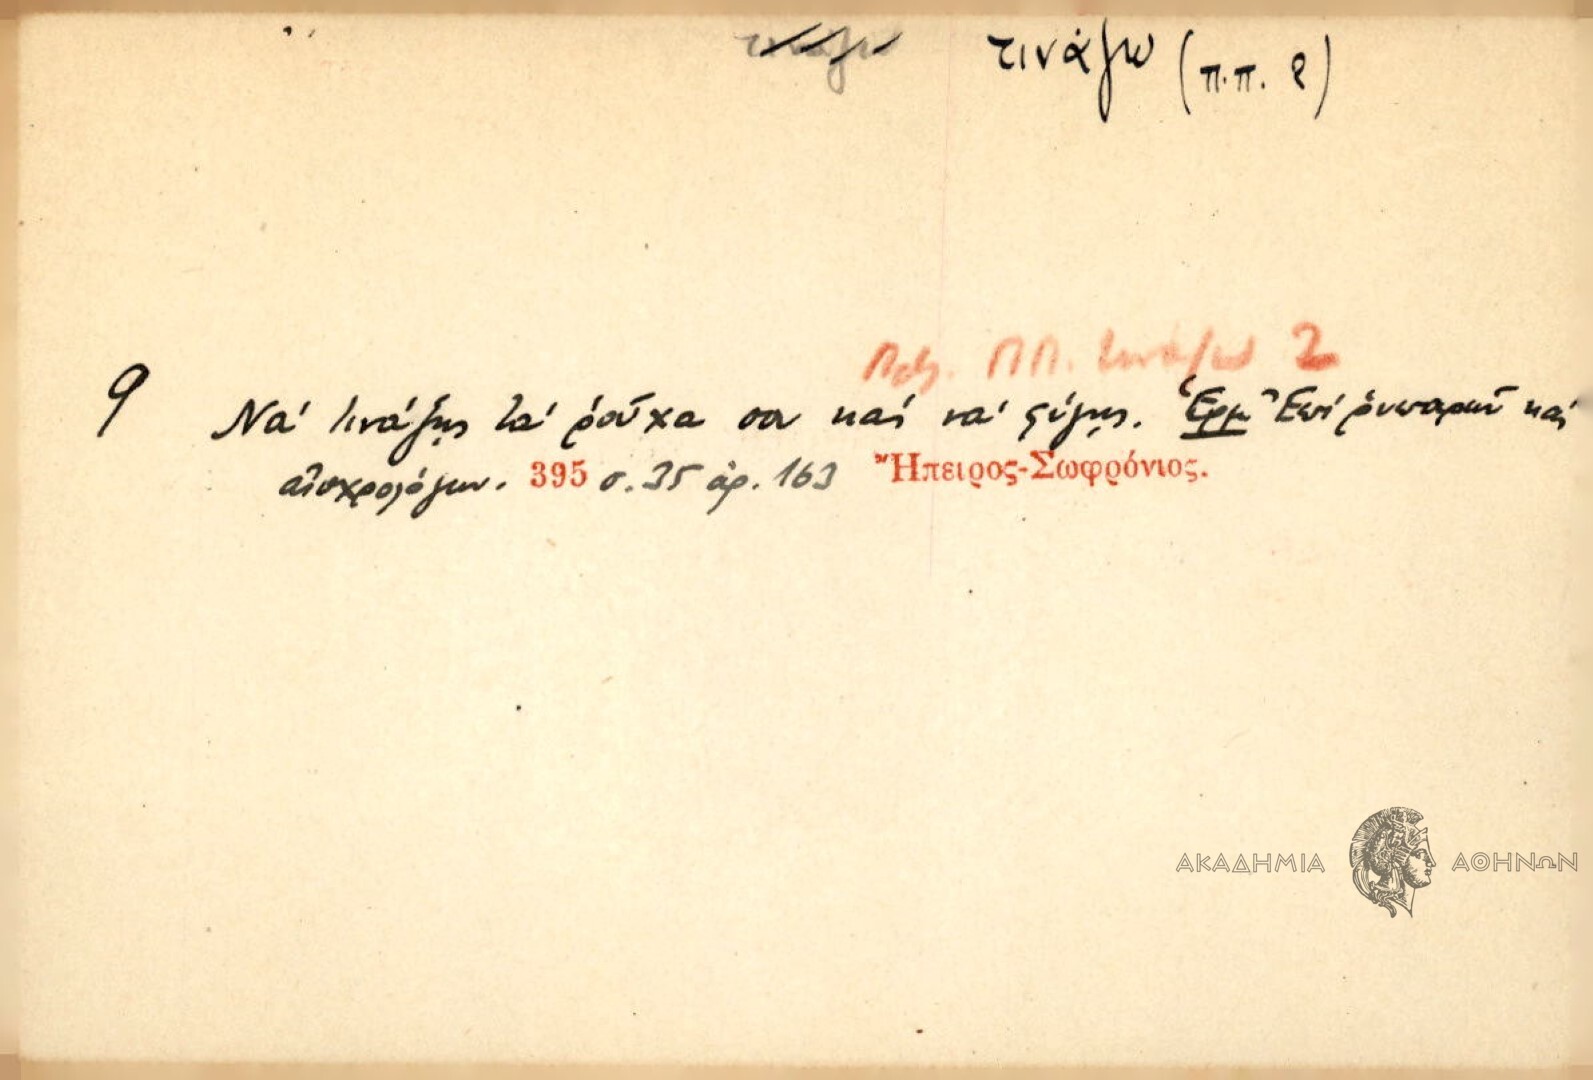 τινάζω τινάζω (π.π. 2)
Πρβ. ΠΠ. τινάζω 2
9 Νὰ τινάξῃς τὰ ροῦχα σου καὶ νὰ φύγῃς. Ἑρμ Ἐπὶ ῥυπαρῶν καὶ
αἰσχρολόγων. 395 σ. 35 ἀρ. 163 Ἤπειρος-Σωφρόνιος.
ΑΚΑΔΗΜΙΑ ΑΘΗΝΩΝ